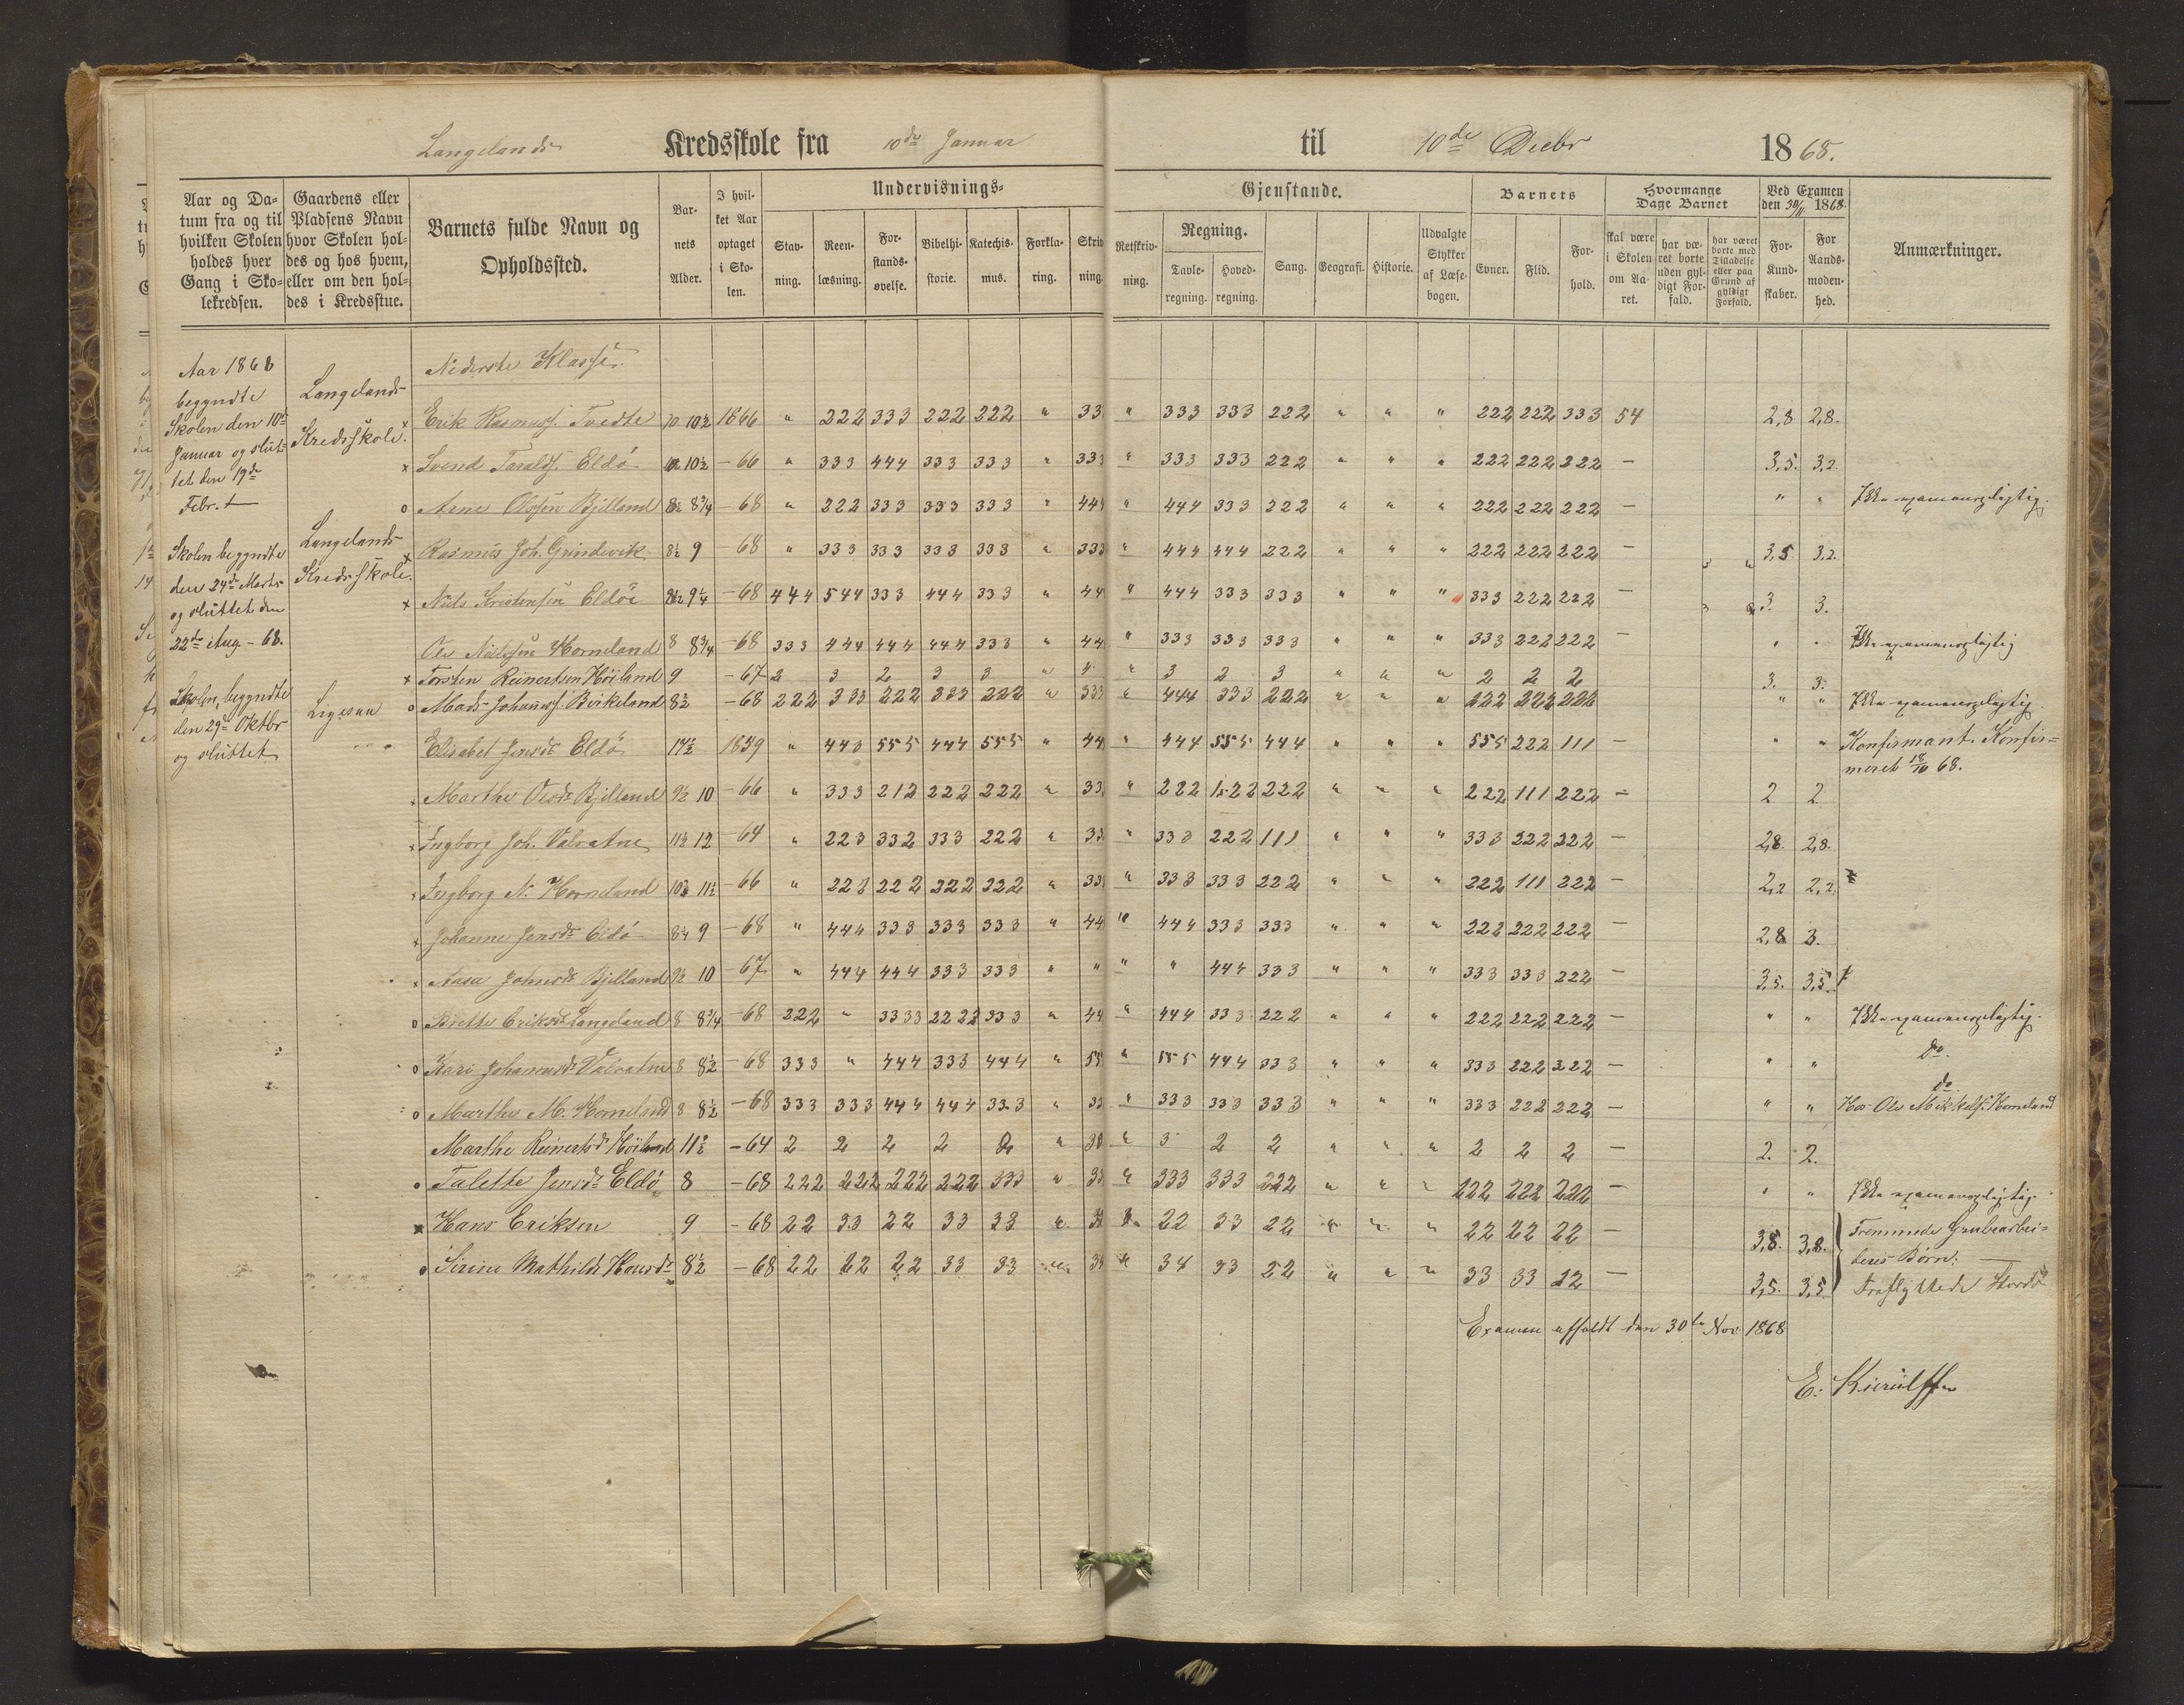 Langelands Kredsskole fra 10de Januar til 10de Decbr 1868.
Aar og Datum fra og til hvilken Skolen holdes hver Gang i Skolekredsen.
Gaardens eller Pladsens Navn hvor Skolen holdes og hos hvem, eller om den holdes i Kredsstue.
Barnets fulde Navn og Opholdssted.
Barnets Alder.
I hvilket Aar optaget i Skolen.
Undervisnings-Gjenstande.
Stavning. Reenlæsning. Forstandsøvelse. Bibelhistorie. Katechismus. Forklaring. Skrivning.
Retskrivning. Regning. Tavleregning. Hovedregning. Sang. Geografi. Historie. Udvalgte Stykker af Læsebogen.
Barnets Evner. Flid. Forhold.
Hvormange Dage Barnet
skal være i Skolen om Aaret. har været borte uden gyldigt Forfald. har været borte med Tilladelse eller paa Grund af gyldigt Forfald.
Ved Examen den 30/11 1868.
For Kundskaber. For Aandsmodenhed.
Anmærkninger.
Aar 1868
begyndte
Skolen den 10de
Januar og slut-
tet den 19de
Febr.
Langelands
Kredsskole.
Skolen begyndte
den 24de Marts
og sluttet den
22de Aug. - 68.
Langelands
Kredsskole.
Skolen begyndte
den 29de Oktbr
og sluttet
Ligesaa
Nederste Klasse
x Erik Rasmuss. Tvedte 10 10½ 1866 " 222 333 222 222 " 33 " 333 333 222 " " " 222 222 333 54 2,8 2,8.
x Svend Taralds. Eldö 10½ -66 " 333 444 333 333 " 333 " 333 333 222 " " " 222 222 222 — 3,5. 3,2.
o Arne Olssen Bjelland 8¾ -68 " 222 333 333 333 " 444 " 444 333 222 " " " 222 222 222 — " " Ikke examenspligtig.
x Rasmus Joh. Grindevik 8½ 9 -68 " 333 333 333 333 " 333 " 444 444 222 " " " 222 222 222 — 3,5 3,2.
x Niels Kristensen Eldöi 8½ 9¼ -68 444 544 333 444 333 " 44 " 444 333 333 " " " 333 222 222 — 3. 3.
Ole Nielssen Horneland 8 8¾ -68 333 444 444 444 333 " 44 " 333 333 333 " " " 333 222 222 — " " Ikke examenspligtig
x Torsten Reinertsen Höiland 9 -67 2 3 2 3 3 " 4 " 3 2 3 " " " 2 2 2 3. 3.
o Mads Johanness. Birkeland 8½ -68 222 333 222 333 222 " 333 " 444 333 222 " " " 222 222 222 " " Ikke examenspligtig.
Elisabet Jensdr Eldö 14½ 1859 " 443 555 444 555 " 44 " 444 555 444 " " " 555 222 111 — " " Konfirmant. Konfir-
meret 18/10 68.
Marthe Olsdr Bjelland 9½ 10 -66 " 333 212 222 222 " 33 " 222 1.22 222 " " " 222 111 222 — 2 2.
Ingborg Joh. Valvatne 11½ 12 -64 " 223 332 333 222 " 33 " 333 222 111 " " " 333 222 222 — 2,8. 2,8.
Ingborg N. Horneland 11½ -66 " 223 222 322 222 " 33 " 333 333 222 " " " 222 111 222 — 2,2 2,2.
x Johanne Jensdr Eldö 8¼ 9 -68 " 444 333 333 333 " 44 " 444 333 333 " " " 222 222 222 — 2,8 3.
Aasa Johnsdr Bjelland 9½ 10 -67 " 444 444 333 333 " " " " 444 333 " " " 333 333 222 — 3,5. 3,5.
o Brette Eriksdr Langeland 8 8¾ -68 222 " 3333 2222 333 " 44 " 444 333 222 " " " 222 222 222 — " " Ikke examenspligtig.
o Kari Johannesdr Valvatne 8 8½ -68 333 " 444 333 444 " 55 " 555 444 333 " " " 333 222 222 — " " Do.
o Marthe M. Horneland 8 8½ -68 333 333 444 444 333 " 33 " 333 333 333 " " " 333 222 222 — " " do
Hos Ole Mikkels. Horneland
Marthe Reinertsdr Höiland 11½ -64 2 2 2 2 2 " 30 " 3 2 2 " " " 2 2 2 — 2. 2.
o Talette Jensdr Eldö 8 -68 222 222 222 222 333 " 33 " 333 333 222 " " " 222 222 222 — " " Ikke examenspligtig.
x Hans Eriksen 9 -68 22 33 22 33 33 " " 22 33 22 " " " 22 22 22 — 3,8. 3,8. Fremmede Grubearbei-
deres Børn.
Sirine Mathilde Hansdr 8½ -68 22 22 22 33 33 " 34 " 34 33 22 " " " 33 33 22 — 3,5. 3,5. Fraflyttede Stordö
Examen afholdt den 30te Nov. 1868
E. Kierulff